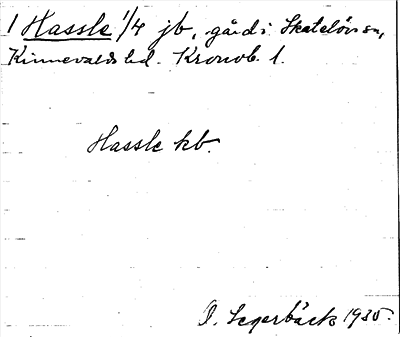 1 Hassle 1/4 jb, gård i Skatelövs sn,
Kinnevalds hd. Kronob. l.
Hassle kb.
O. Segerbäck 1935.